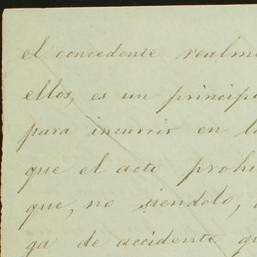 el concedente realm
ellos, es un princip
para incurrir en l
que el acto prohi
que, no siendolo,
ga de accidente q